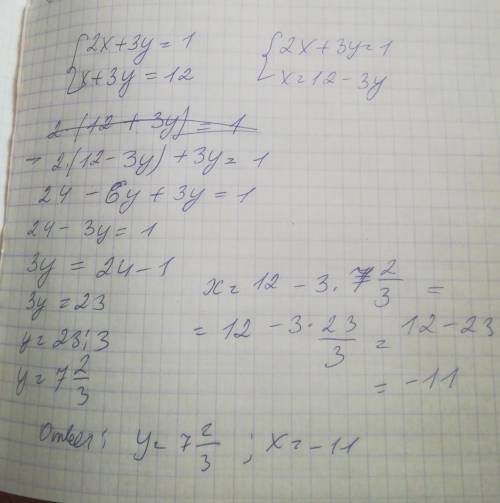 2x+3y=1
x+3y=12
2x+3y=1
x=12-3y
2(12+3y)=1
-2(12-3y)+3y=1
24-6y+3y=1
24-3y=1
3y=24-1
3y=23
y=23:3
y=7 2/3
x=12-3·7 2/3=
=12-3·23/3=12-23
=-11
Ответ: y=7 2/3; x=-11